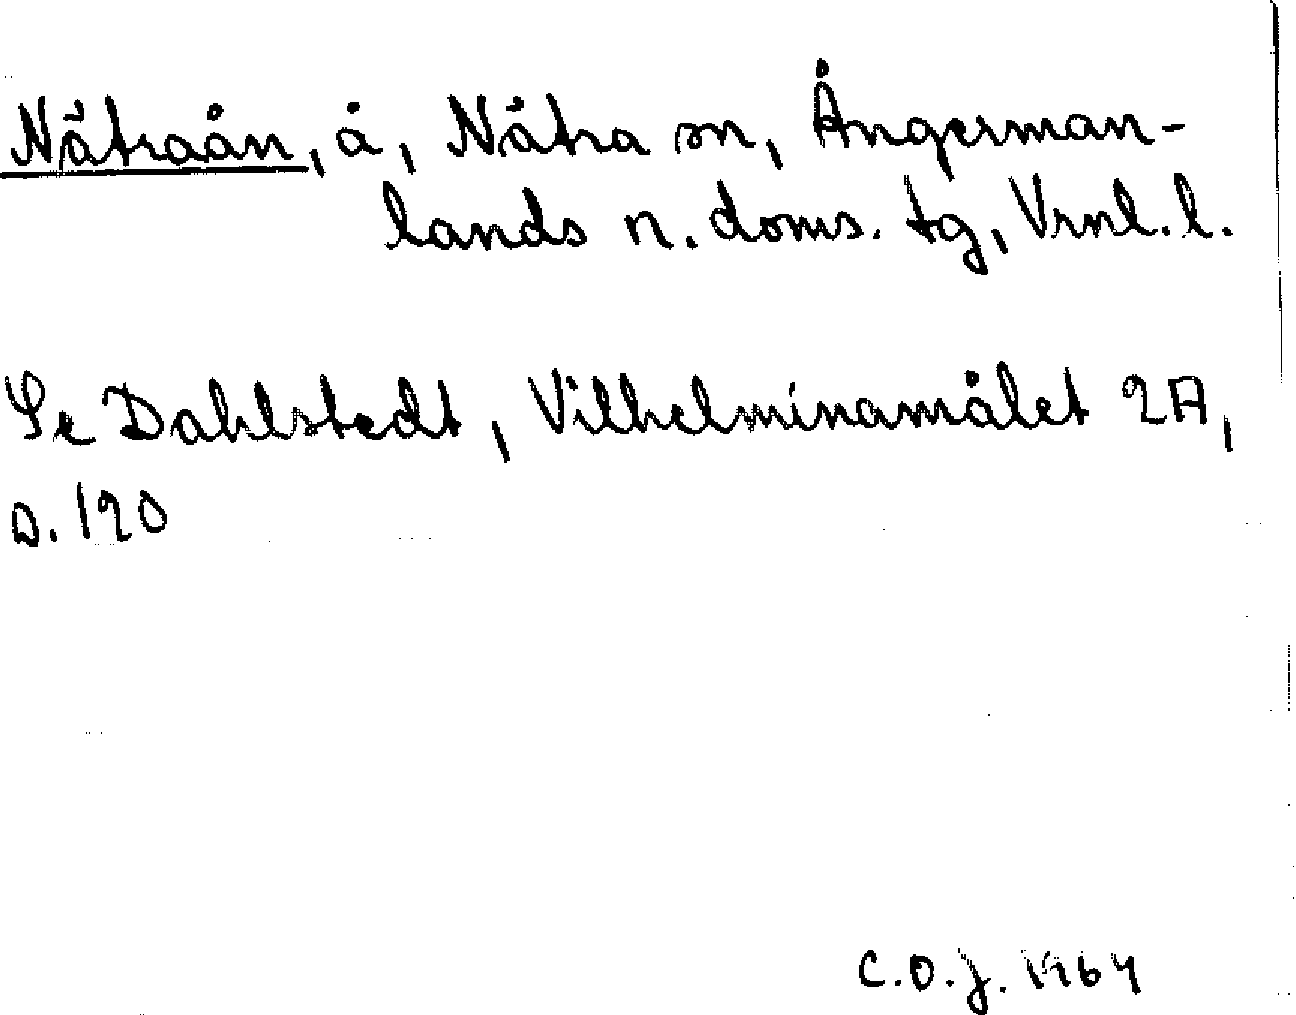 Nätraån, å, Nätra sn, Ångerman-
lands n. doms. tg, Vrnl. l.
Se Dahlstedt, Vilhelminamålet 2A,
s. 120
C.O.J. 1964